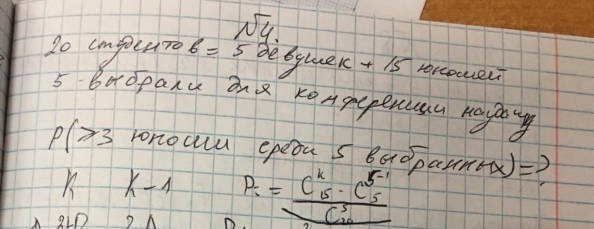 №4.
20 студентов = 5 девушек + 15 юношей
5 выбрали для конференции наудачу
P(≥3 юноши среди 5 выбранных) = ?
K K-1 Pᵢ = C₁₅ᵏ · C₅⁵⁻ⁱ / C₂₀⁵